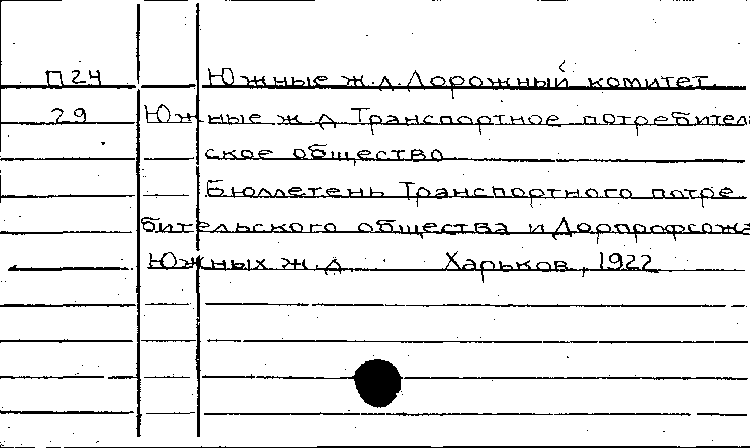 П24 Южные ж.д. Дорожный комитет.
29 Южные ж.д Транспортное потребитель
ское общество
Бюллетень Транспортного потре
бительского общества и Дорпрофсожа
Южных ж.д. Харьков, 1922